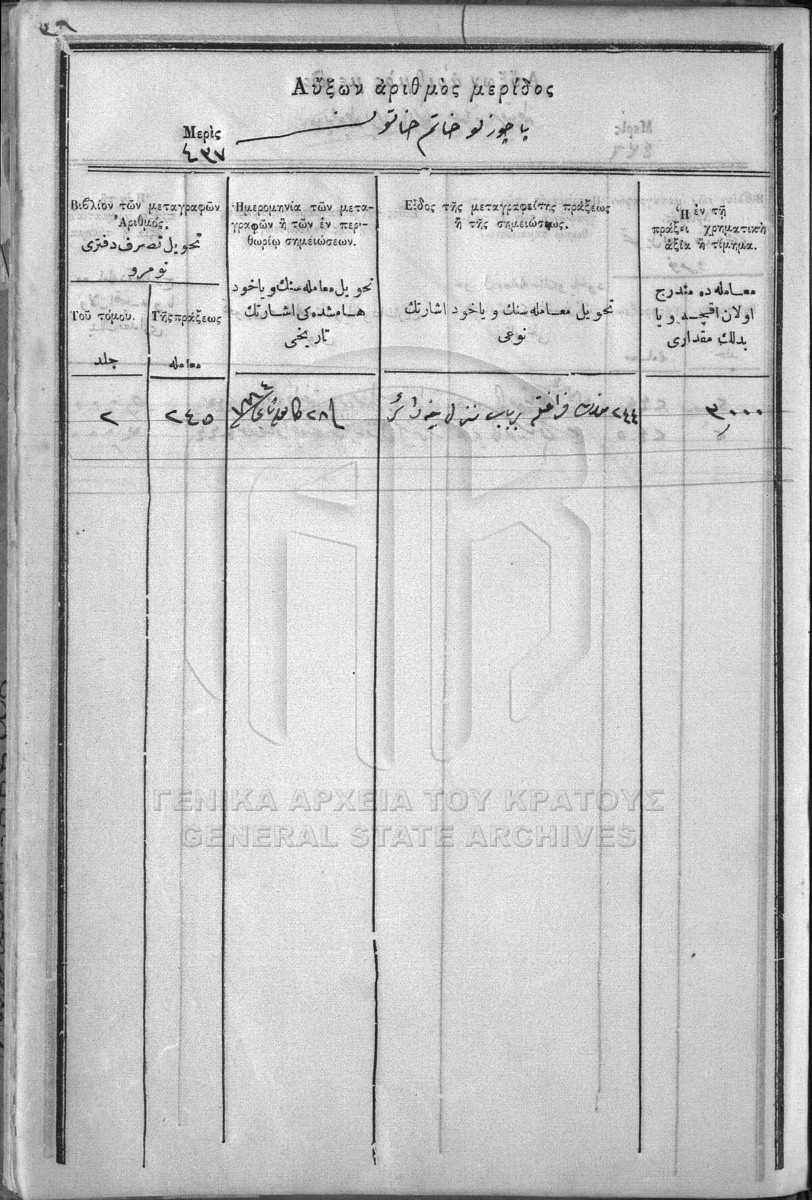 ٤٩
Αὔξων ἀριθμὸς μερίδος
خاتم خاتون
Μερὶς
٤٣٧
Βιβλίον τῶν μεταγραφῶν
Ἀριθμός.
تحويل تصرف دفترى
نومرو
Τοῦ τόμου.
جلد
Τῆς πράξεως
معامله
Ἡμερομηνία τῶν μετα-
γραφῶν ἢ τῶν ἐν περι-
θωρίῳ σημειώσεων.
تحويل معامله سنك و ياخود
هامشده كى اشارتك
تاريخى
Εἶδος τῆς μεταγραφείσης πράξεως
ἢ τῆς σημειώσεως.
تحويل معامله سنك و ياخود اشارتك
نوعى
Ἡ ἐν τῇ
πράξει χρηματικὴ
ἀξία ἢ τίμημα.
معامله ده مندرج
اولان اقچه و يا
بدلك مقدارى
٢
٢٤٥
٢٨
٢٤٤
٣,٠٠٠
ΓΕΝΙΚΑ ΑΡΧΕΙΑ ΤΟΥ ΚΡΑΤΟΥΣ
GENERAL STATE ARCHIVES